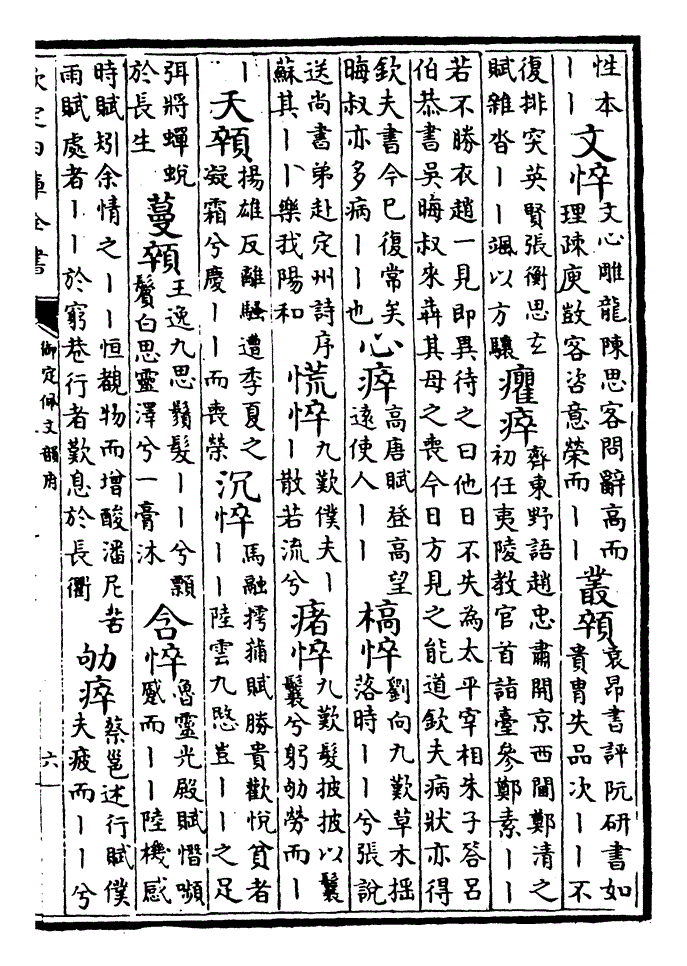 性本
丨丨
文悴
文心雕龍陳思客問辭高而
理疎庾敳客咨意榮而丨丨
叢顇
袁昂書評阮研書如
貴胄失品次丨丨不
復排突英賢張衡思玄
賦雜沓丨丨颯以方驤
癯瘁
齊東野語趙忠肅開京西閫鄭清之
初任夷陵教官首詣臺參鄭素丨丨
若不勝衣趙一見即異待之曰他日不失為太平宰相朱子答呂
伯恭書吳晦叔來犇其母之喪今日方見之能道欽夫病狀亦得
欽夫書今已復常矣
晦叔亦多病丨丨也
心瘁
高唐賦登高望
遠使人丨丨
槁悴
劉向九歎草木揺
落時丨丨兮張說
送尚書弟赴定州詩序
蘇其丨丨樂我陽和
慌悴
九歎僕夫丨
丨散若流兮
瘏悴
九歎髪披披以鬤
鬤兮躬劬勞而丨
丨
夭顇
揚雄反離騷遭季夏之
凝霜兮慶丨丨而喪榮
沉悴
馬融摴蒱賦勝貴歡悅貧者
丨丨陸雲九愍豈丨丨之足
弭將蟬蛻
於長生
蔓顇
王逸九思鬚髪丨丨兮顠
鬢白思靈澤兮一膏沐
含悴
魯靈光殿賦憯嚬
慼而丨丨陸機感
時賦矧余情之丨丨恒覩物而增酸潘尼苦
雨賦處者丨丨於窮巷行者歎息於長衢
劬瘁
蔡邕述行賦僕
夫疲而丨丨兮
欽定四庫全書
御定佩文韻府
六